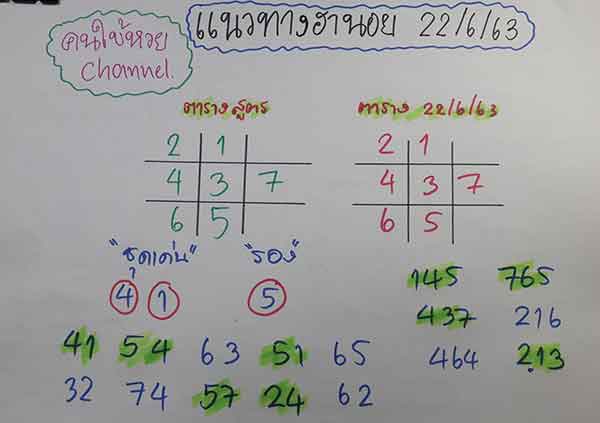 คนใบ้หวย
Channel.
แนวทางฮานอย 22/6/63
ตารางสูตร
2 1
4 3 7
6 5
ตาราง 22/6/63
2 1
4 3 7
6 5
"ชุดเด่น" "รอง"
4 1 5
41 54 63 51 65
32 74 57 24 62
145 765
437 216
464 213